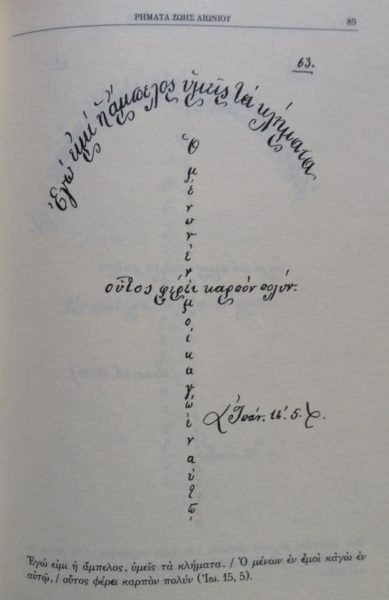 ΡΗΜΑΤΑ ΖΩΗΣ ΑΙΩΝΙΟΥ 89
63.
Ἐγώ εἰμί ἡ ἄμπελος ὑμεῖς τὰ κλήματα
Ὁ μένων ἐν ἐμοὶ καγὼ ἐν αὐτῷ
οὗτος φέρει καρπόν πολύν.
(Ἰωάν. ιε΄. 5.)
Ἐγώ εἰμι ἡ ἄμπελος, ὑμεῖς τὰ κλήματα. / Ὁ μένων ἐν ἐμοὶ κἀγὼ ἐν
αὐτῷ, / οὗτος φέρει καρπὸν πολύν (Ἰω. 15, 5).